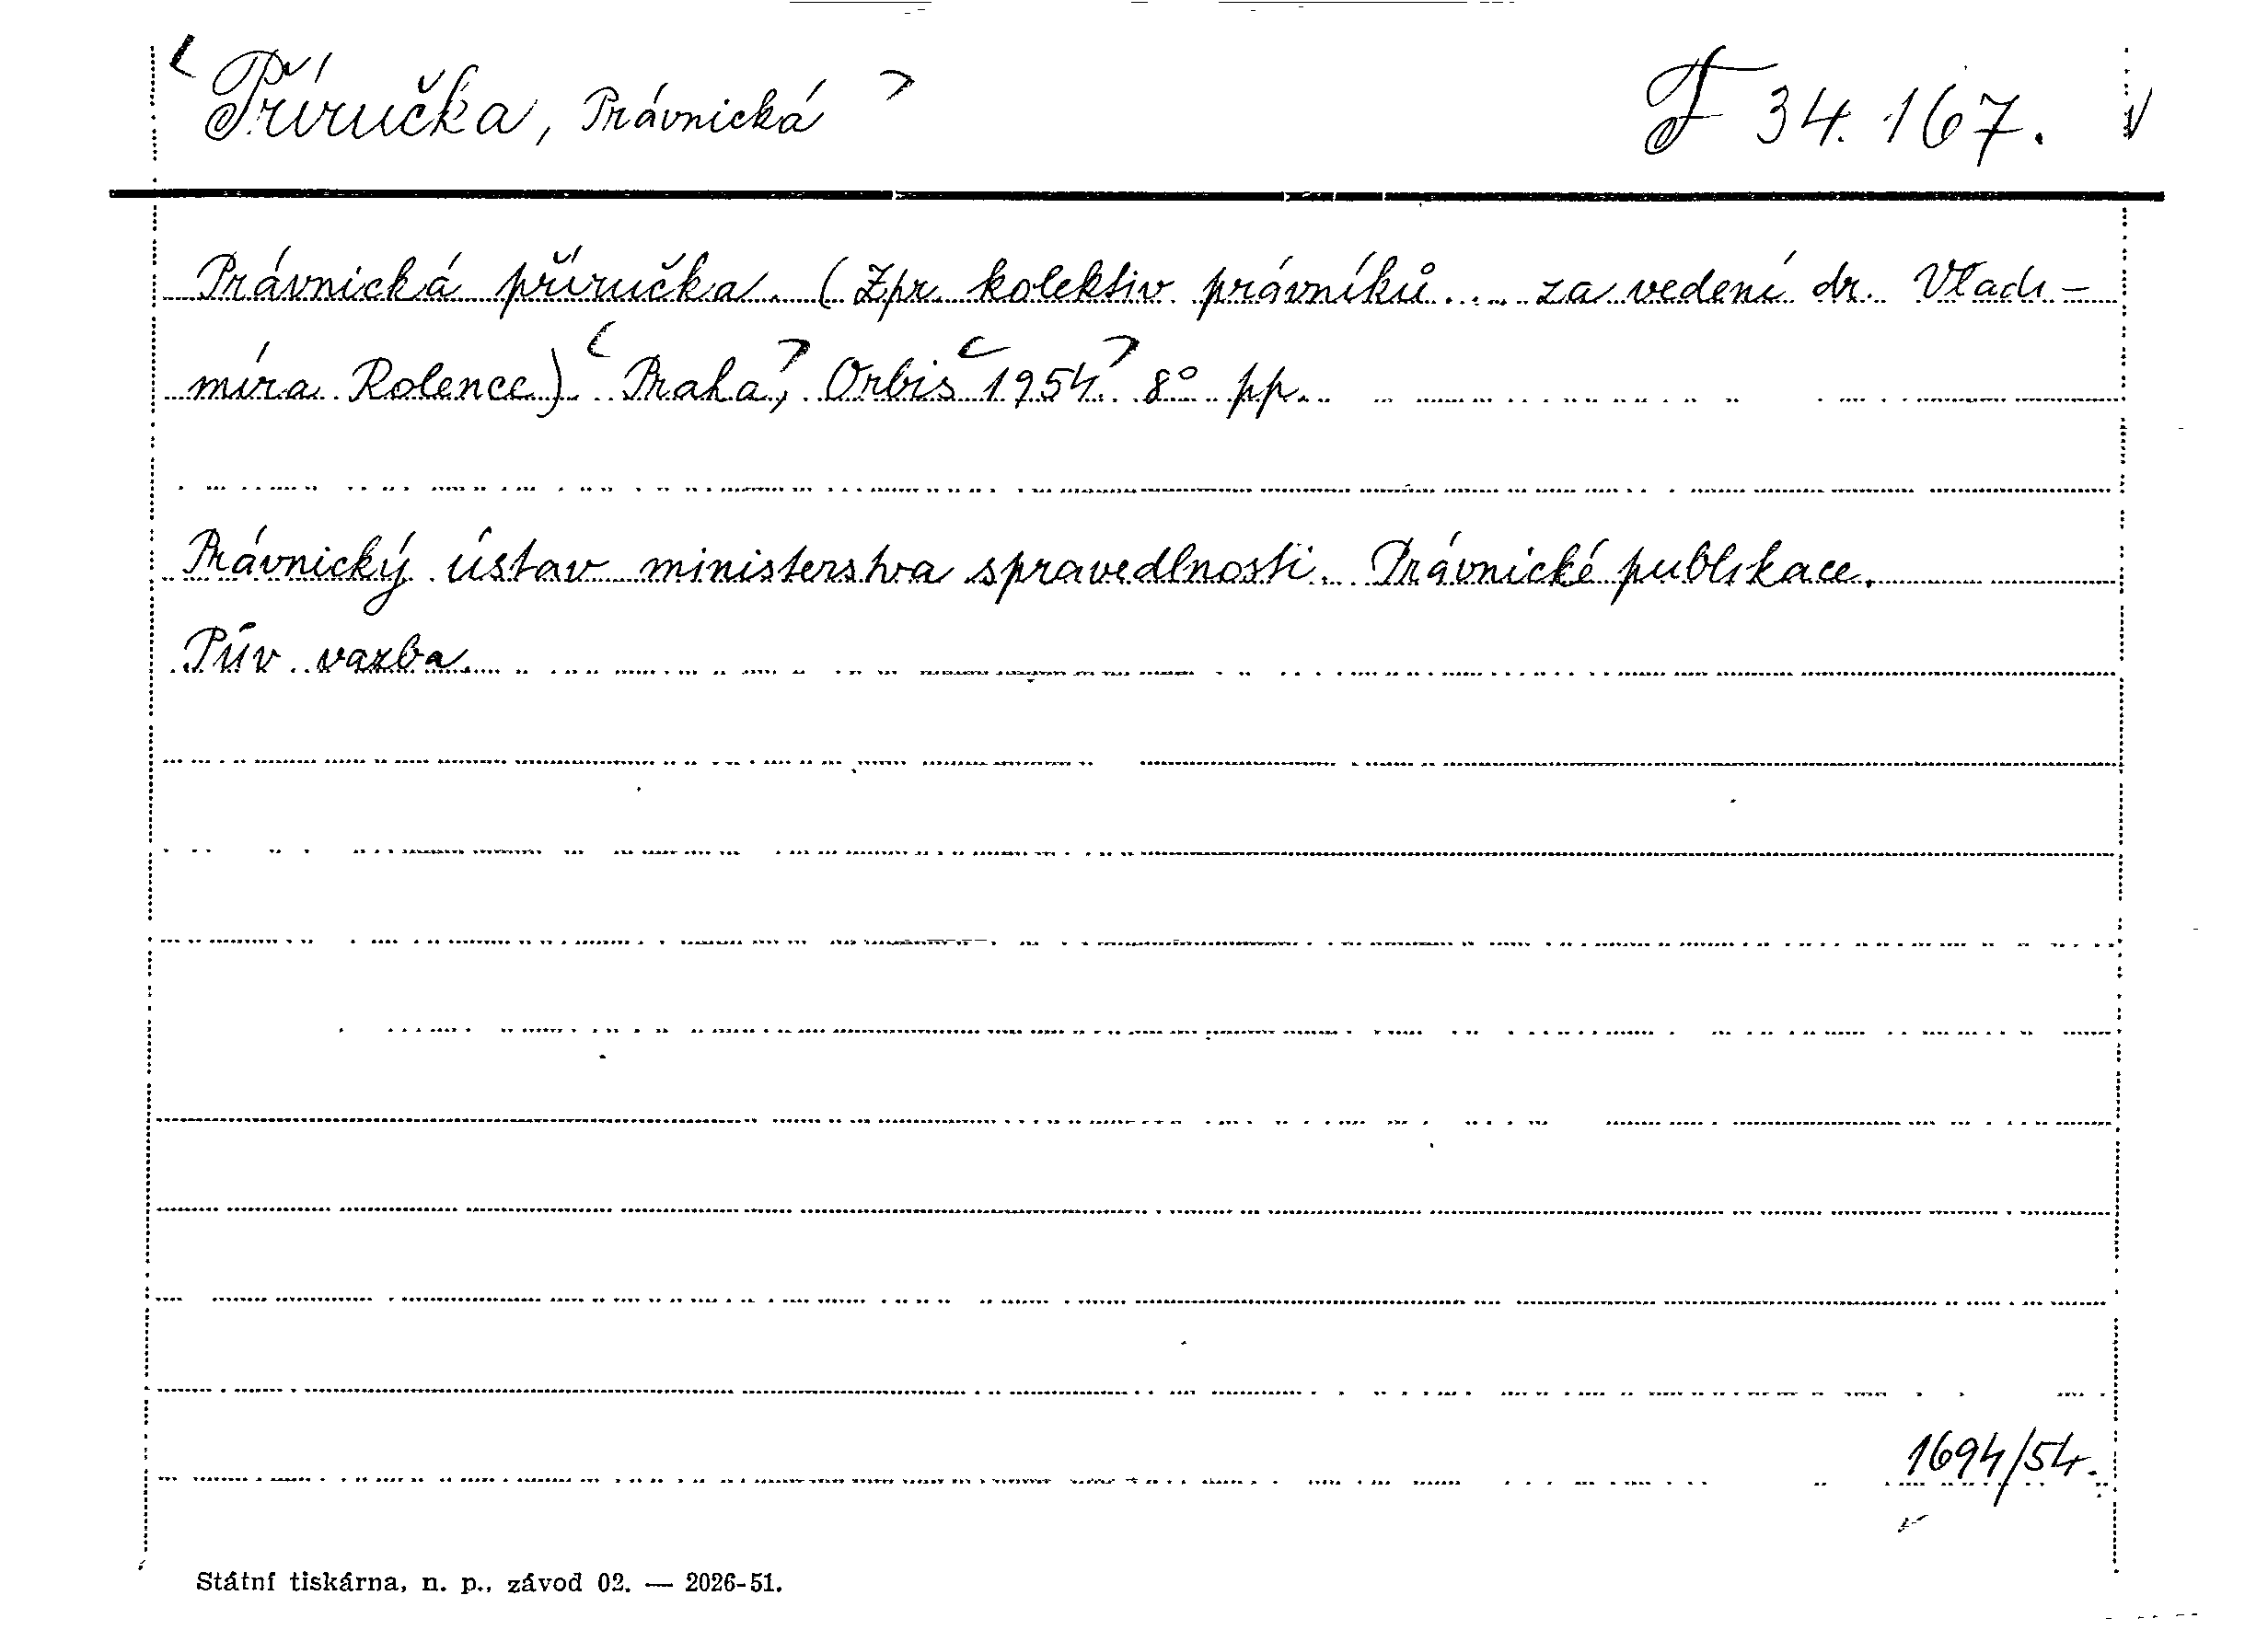 < Příručka, Právnická > F 34.167.
Právnická příručka. (Zpr. kolektiv právníků.... za vedení dr. Vladi-
míra Rolence) <Praha>, Orbis <1954.> 8° pp.
Právnický ústav ministerstva spravedlnosti. Právnické publikace.
Pův. vazba.
1694/54.
Státní tiskárna, n. p., závod 02. — 2026-51.